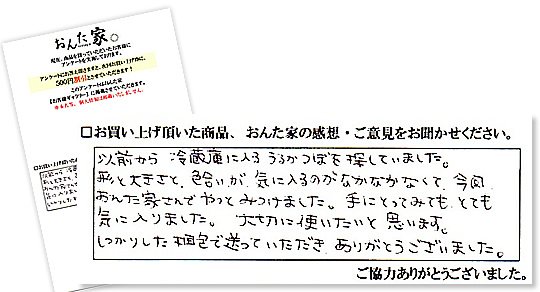 おんた家。
500円割引とさせていただきます!
このアンケートはおんた家
□お買い上げ頂いた商品、おんた家の感想・ご意見をお聞かせください。
以前から 冷蔵庫に入る うるかつぼを探していました。
形と大きさと、色合いが、気に入るのがなかなかなくて、今回、
おんた家さんでやっとみつけました。手にとってみても、とても
気に入りました。 大切に使いたいと思います。
しっかりした梱包で送っていただき、ありがとうございました。
ご協力ありがとうございました。